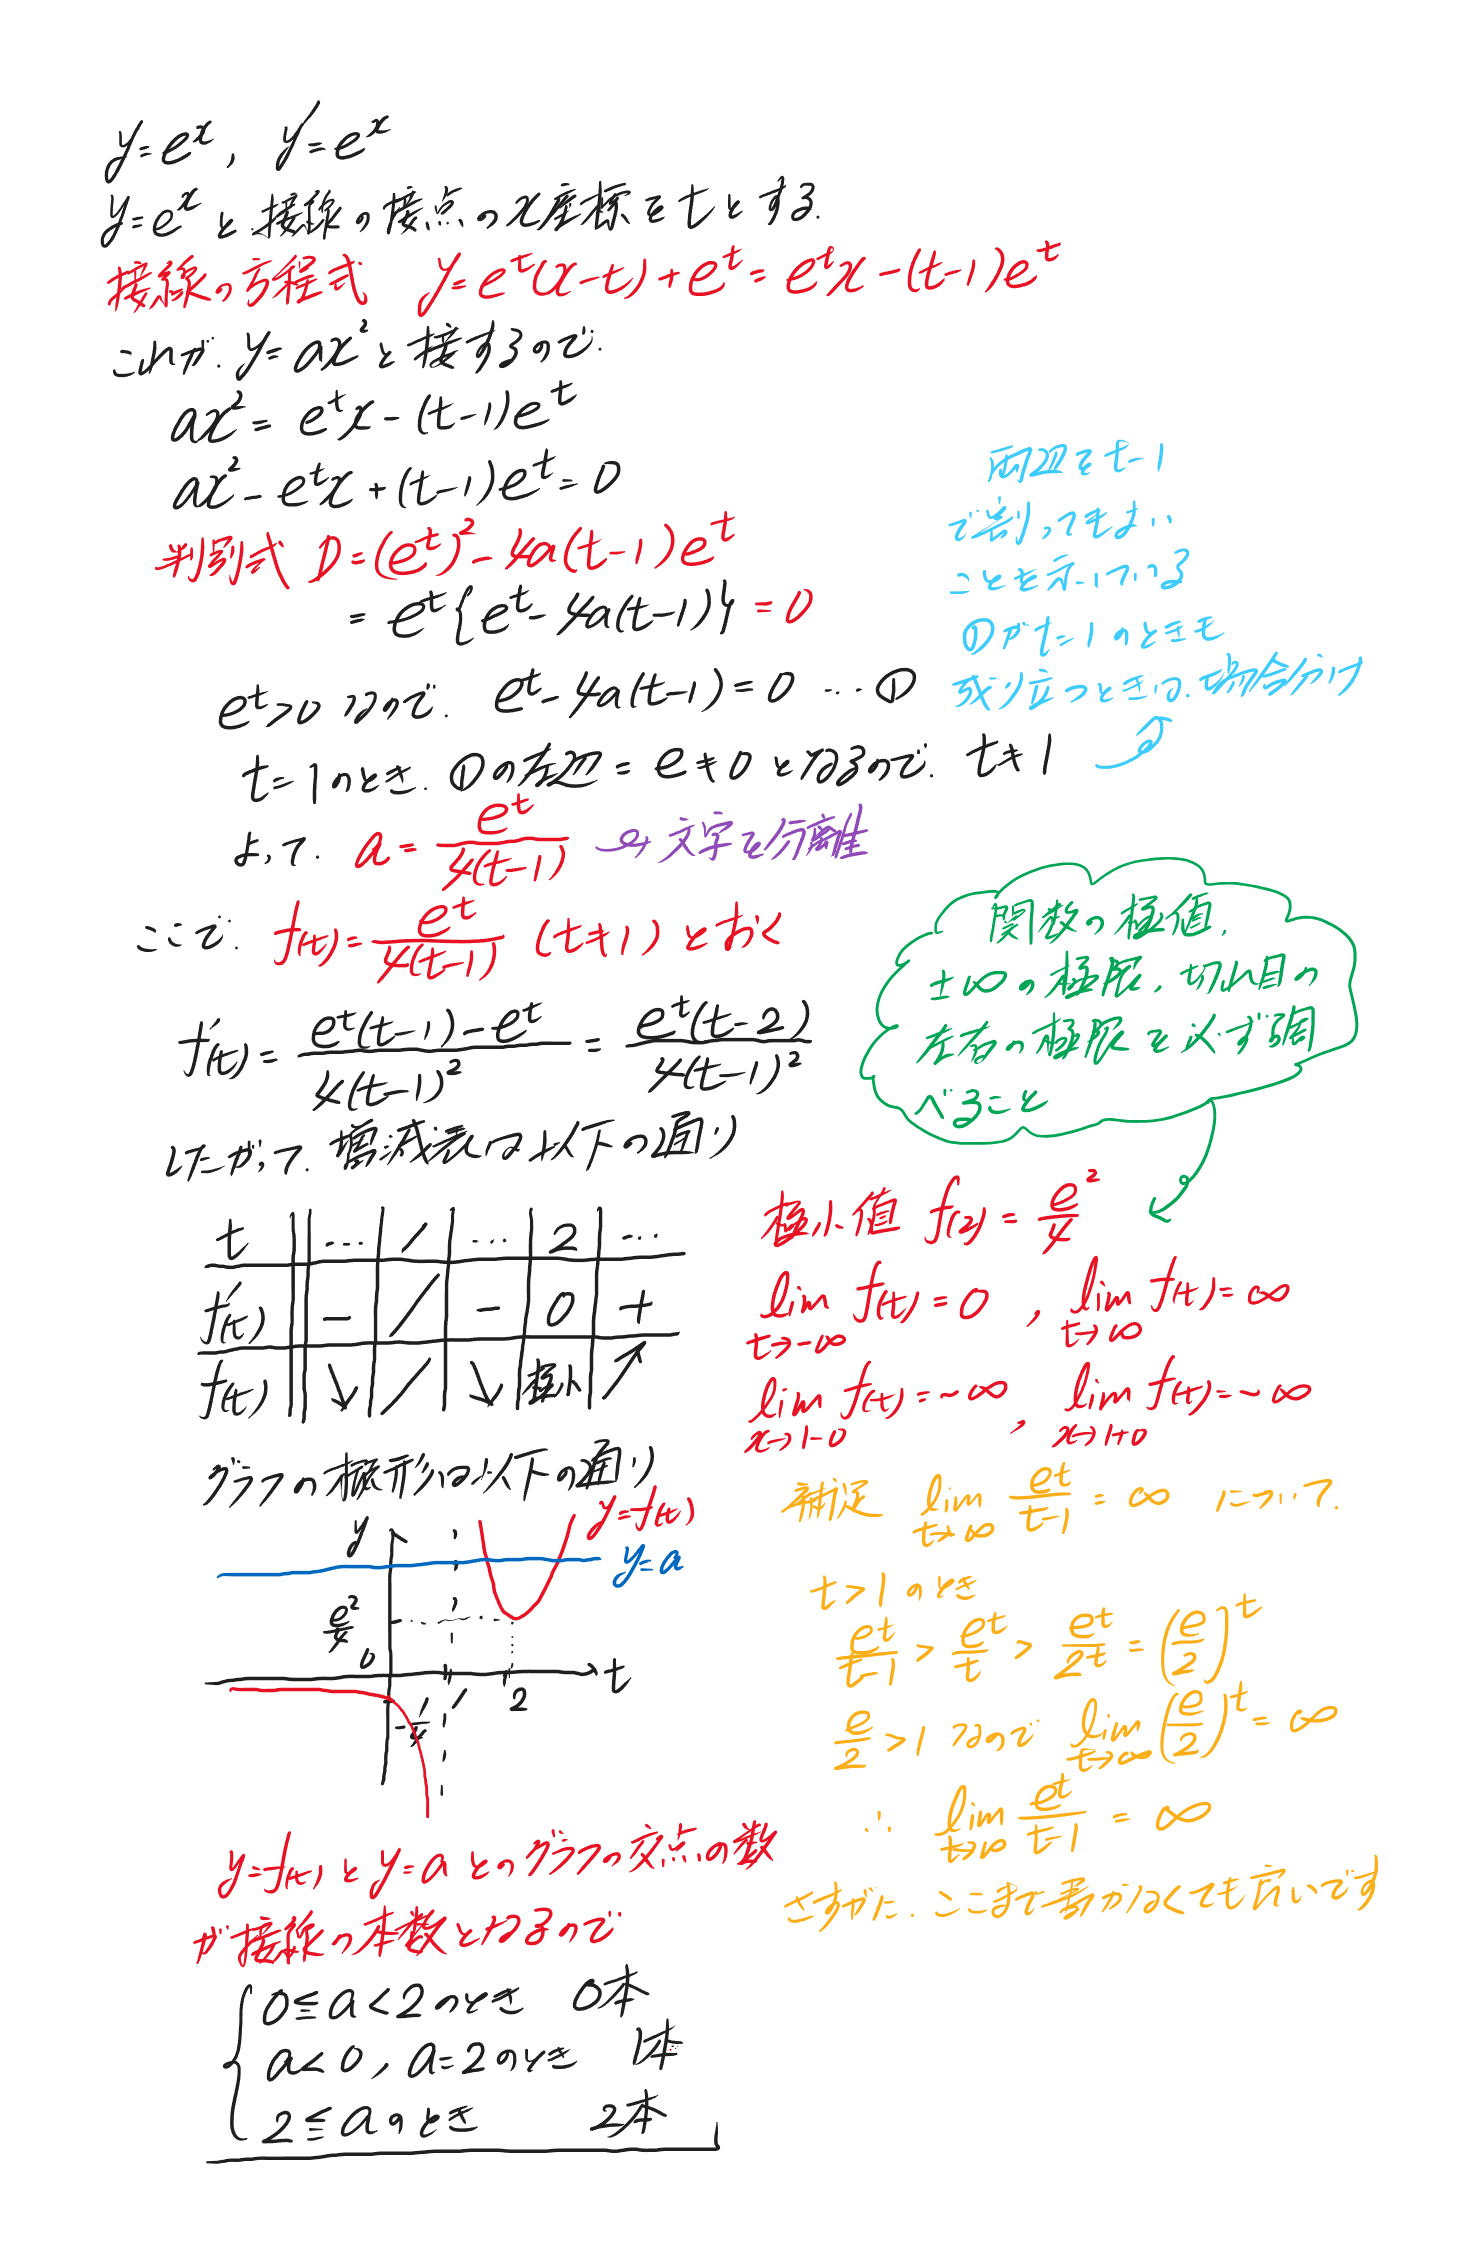 y=e^x, y'=e^x
y=e^xと接線の接点のx座標をtとする.
接線の方程式 y=e^t(x-t)+e^t=e^tx-(t-1)e^t
これが、y=ax^2と接するので.
ax^2=e^tx-(t-1)e^t
ax^2-e^tx+(t-1)e^t=0
判別式 D=(e^t)^2-4a(t-1)e^t
=e^t{e^t-4a(t-1)}=0
e^t>0なので. e^t-4a(t-1)=0 …①
t=1のとき. ①の左辺=e≠0となるので. t≠1
両辺をt-1
で割ってもよい
ことを示している
①がt=1のときも
成り立つときは、場合分け
よって. a=e^t/4(t-1) 文字を分離
ここで. f(t)=e^t/4(t-1) (t≠1)とおく
f'(t)=e^t(t-1)-e^t/4(t-1)^2=e^t(t-2)/4(t-1)^2
関数の極値,
±∞の極限, 切れ目の
左右の極限を必ず調
べること
したがって. 増減表は以下の通り
t … 1 … 2 …
f'(t) - / - 0 +
f(t) ↘ / ↘ 極小 ↗
極小値 f(2)=e^2/4
lim t→-∞ f(t)=0, lim t→∞ f(t)=∞
lim x→1-0 f(t)=-∞, lim x→1+0 f(t)=-∞
グラフの概形は以下の通り
y
y=f(t)
y=a
e^2/4
0
t
-1/4
1
2
補足 lim t→∞ e^t/t-1=∞ について.
t>1のとき
e^t/t-1>e^t/t>e^t/2^t=(e/2)^t
e/2>1なので lim t→∞ (e/2)^t=∞
∴ lim t→∞ e^t/t-1=∞
さすがに、ここまで書かなくても良いです
y=f(t)とy=aとのグラフの交点の数
が接線の本数となるので
0≦a<2のとき 0本
a<0, a=2のとき 1本
2≦aのとき 2本